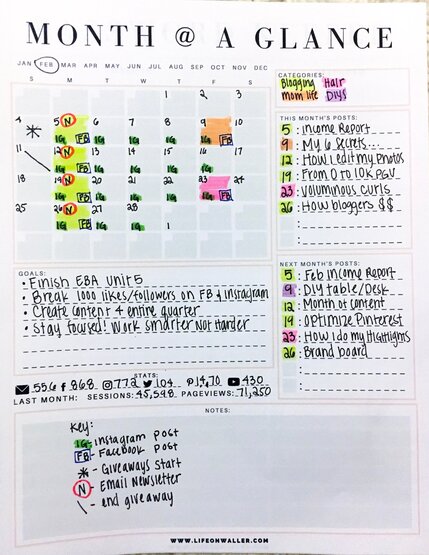 MONTH @ A GLANCE
JAN FEB MAR APR MAY JUN JUL AUG SEP OCT NOV DEC
S M T W T F S
1 2 3
4 5 N 6 7 8 9 10
IG FB IG IG IG IG FB
11 12 N 13 14 15 16 17
IG FB IG IG IG IG
18 19 N 20 21 22 23 24
IG FB IG IG IG IG FB
25 26 N 27 28
IG FB IG IG 1
CATEGORIES:
Blogging Hair
mom life DIYs
THIS MONTH'S POSTS:
5 : Income Report
9 : My 6 Secrets...
12 : How I edit my Photos
19 : From 0 to 10K PGV
23 : Voluminous curls
26 : How bloggers $$
GOALS:
• Finish EBA Unit 5
• Break 1000 likes/followers on FB & Instagram
• Create content 4 entire quarter
• Stay focused! Work smarter Not Harder
NEXT MONTH'S POSTS:
5 : Feb Income Report
9 : DIY table/Desk
12 : Month of content
19 : Optimize Pinterest
23 : How I do my Highlights
26 : Brand board
STATS:
536 868 772 104 1470 430
LAST MONTH: SESSIONS: 45,598 PAGEVIEWS: 71,250
NOTES:
Key:
IG - Instagram post
FB - Facebook post
- Giveaways start
N - Email Newsletter
\ - end giveaway
WWW.LIFEONWALLER.COM